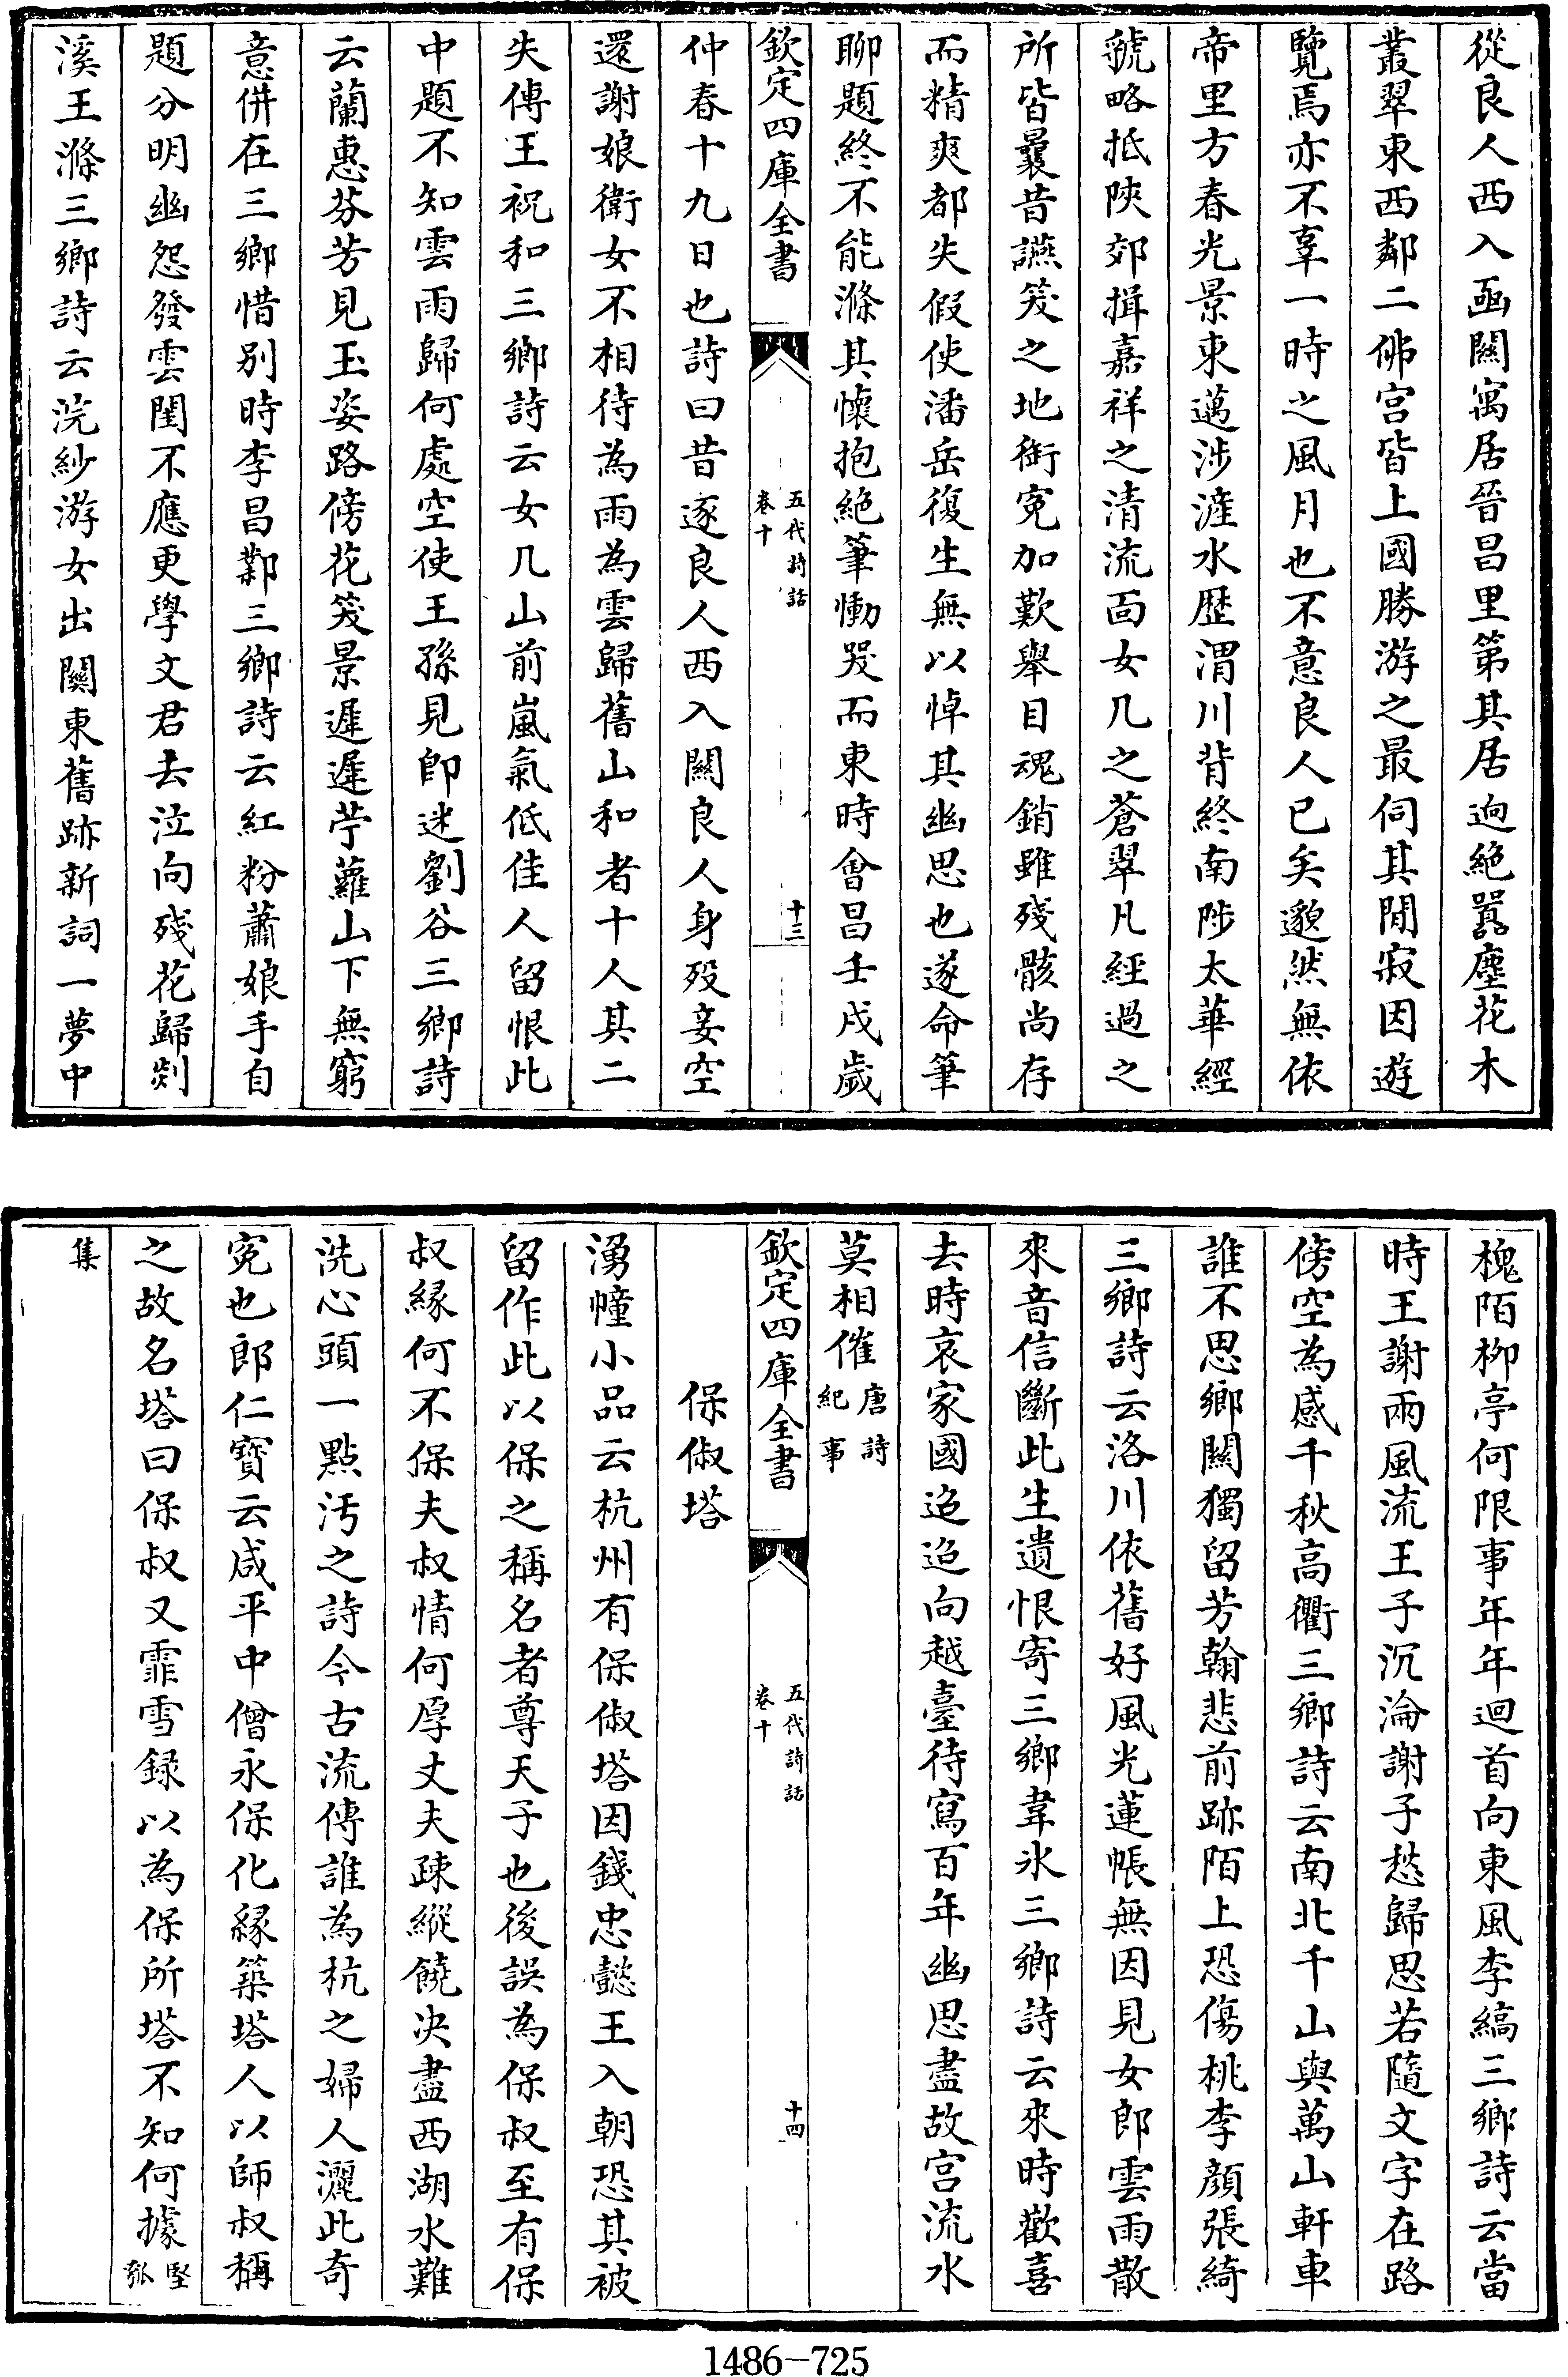 從良人西入函關寓居晉昌里第其居逈絶囂塵花木
叢翠東西鄰二佛宫皆上國勝游之最伺其閒寂因遊
覽焉亦不辜一時之風月也不意良人已矣邈然無依
帝里方春光景東邁涉滻水歴渭川背終南陟太華經
虢略抵陜郊揖嘉祥之清流面女几之蒼翠凡經過之
所皆曩昔讌笑之地銜寃加歎舉目魂銷雖殘骸尚存
而精爽都失假使潘岳復生無以悼其幽思也遂命筆
聊題終不能滌其懷抱絶筆慟哭而東時會昌壬戌歲
欽定四庫全書
五代詩話
卷十
十三
仲春十九日也詩曰昔逐良人西入關良人身殁妾空
還謝娘衛女不相待為雨為雲歸舊山和者十人其二
失傳王祝和三鄉詩云女几山前嵐氣低佳人留恨此
中題不知雲雨歸何處空使王孫見即迷劉谷三鄉詩
云蘭蕙芬芳見玉姿路傍花笑景遲遲苧蘿山下無窮
意併在三鄉惜别時李昌鄴三鄉詩云紅粉蕭娘手自
題分明幽怨發雲閨不應更學文君去泣向殘花歸剡
溪王滌三鄉詩云浣紗游女出關東舊跡新詞一夢中
槐陌柳亭何限事年年迴首向東風李縞三鄉詩云當
時王謝兩風流王子沉淪謝子愁歸思若隨文字在路
傍空為感千秋高衢三鄉詩云南北千山與萬山軒車
誰不思鄉關獨留芳翰悲前跡陌上恐傷桃李顔張綺
三鄉詩云洛川依舊好風光蓮帳無因見女郎雲雨散
來音信斷此生遺恨寄三鄉韋氷三鄉詩云來時歡喜
去時哀家國迢迢向越臺待寫百年幽思盡故宫流水
莫相催唐詩
紀事
欽定四庫全書
五代詩話
卷十
十四
保俶塔
湧幢小品云杭州有保俶塔因錢忠懿王入朝恐其被
留作此以保之稱名者尊天子也後誤為保叔至有保
叔緣何不保夫叔情何厚丈夫疎縱饒决盡西湖水難
洗心頭一點汚之詩今古流傳誰為杭之婦人灑此奇
寃也郎仁寳云咸平中僧永保化緣築塔人以師叔稱
之故名塔曰保叔又霏雪録以為保所塔不知何據堅
瓠
集
1486-725